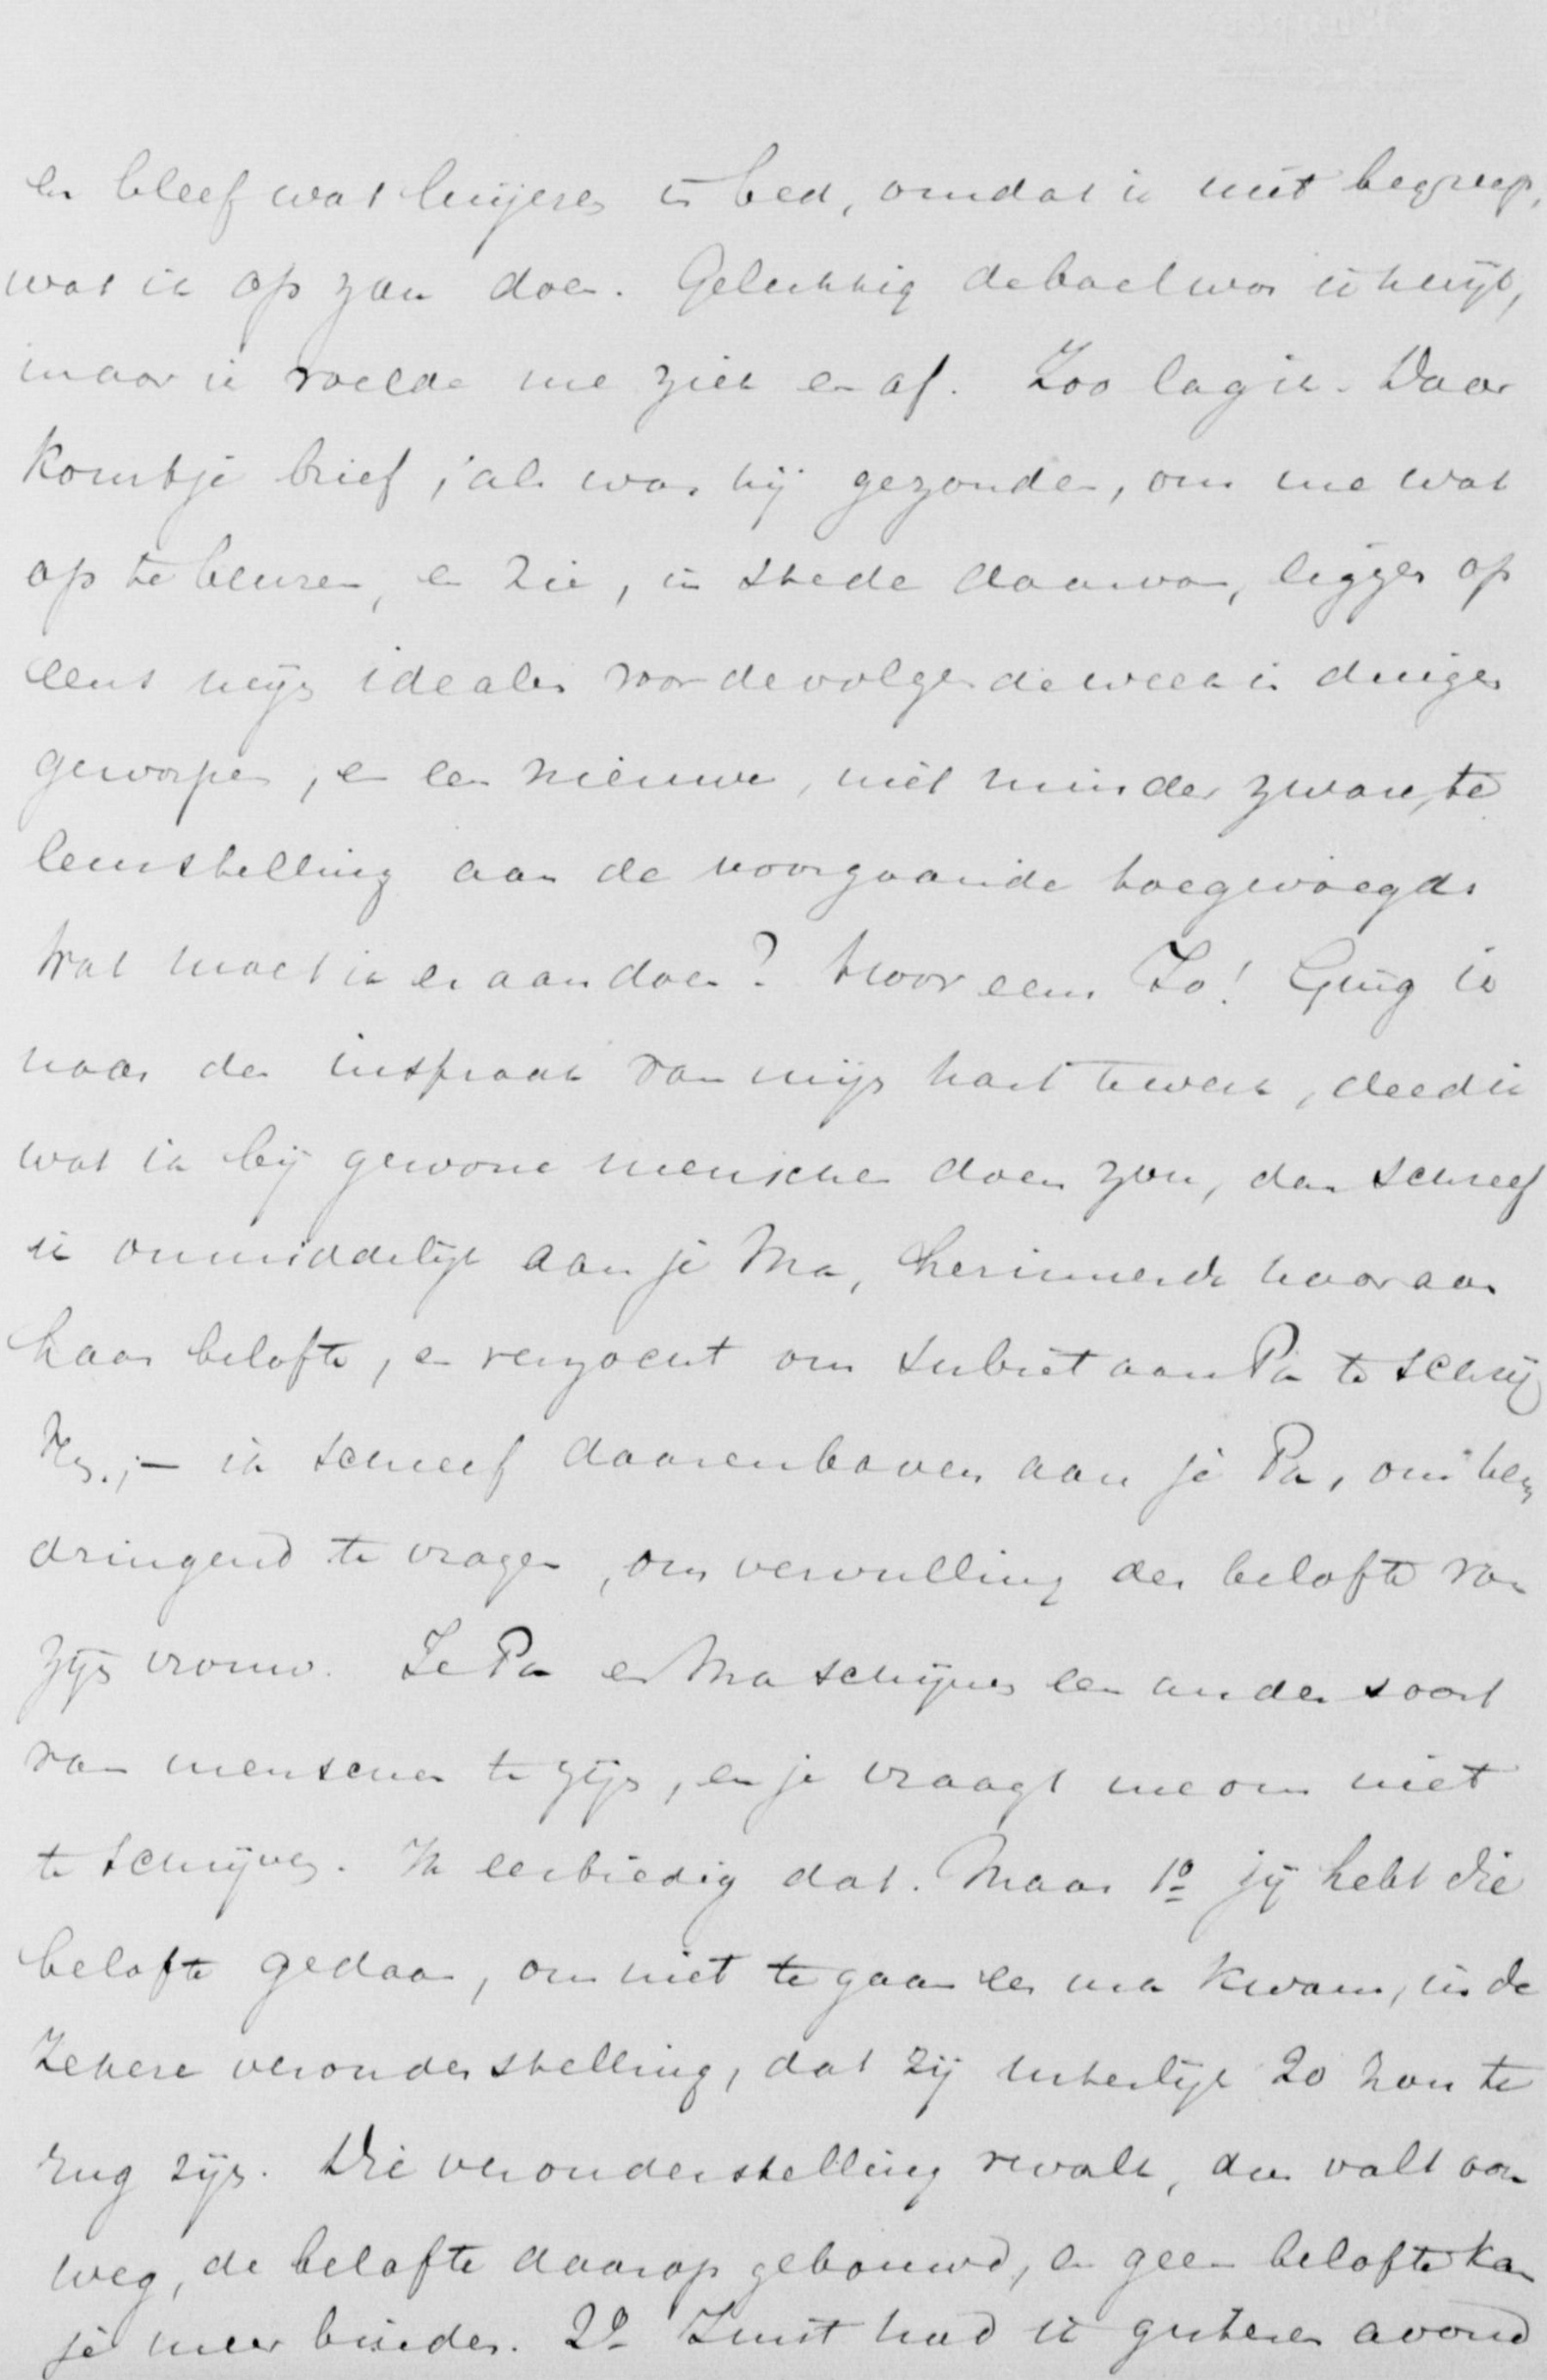 en bleef wat luijeren in bed, omdat ik niet begreep,
wat ik op zou doen. Gelukkig de boel was uit
maar ik voelde me ziek en af. Zoo lag ik. Daar
komt je brief, als was hij gezonden, om me wat
op te beuren, en zie, in stede daarvan, liggen op
eens mijn idealen voor de volgende week in duigen
geworpen, en een nieuwe, niet minder zware, te
leurstelling aan de voorgaande toegevoegd.
Wat moet ik er aan doen? Hoor eens Jo! Ging ik
naar de inspraak van mijn hart te werk, deed ik
wat ik bij gewone menschen doen zou, dan schreef
ik onmiddelijk aan je Ma, herinnerde haar aan
haar belofte, en verzocht om subiet aan Pa te schrij
ven; – ik schreef daarenboven aan je Pa, om hem
dringend te vragen, om vervulling der belofte van
zijn vrouw. Je Pa en Ma schijnen een ander soort
van menschen te zijn, en je vraagt me om niet
te schrijven. Ik eerbiedig dat. Maar 1º jij hebt die
belofte gedaan, om niet te gaan eer ma kwam, in de
zekere veronderstelling, dat zij uiterlijk 20 zou te
rug zijn. Die veronderstelling vervalt, dus valt ook
weg, de belofte daarop gebouwd, en geen belofte kan
je meer binden. 2º Juist had ik gisteren avond